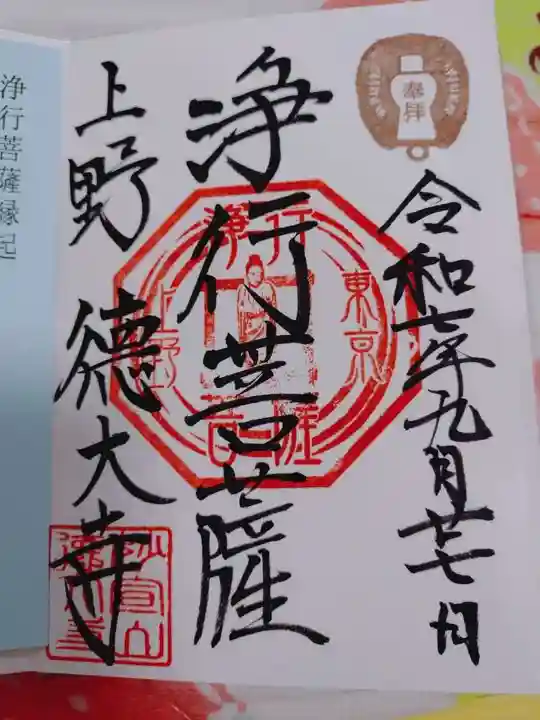 奉拝
令和七年九月廿七日
浄行菩薩
浄行
東京
上野
菩薩
上野 徳大寺
妙宣山
徳大寺
浄行菩薩縁起